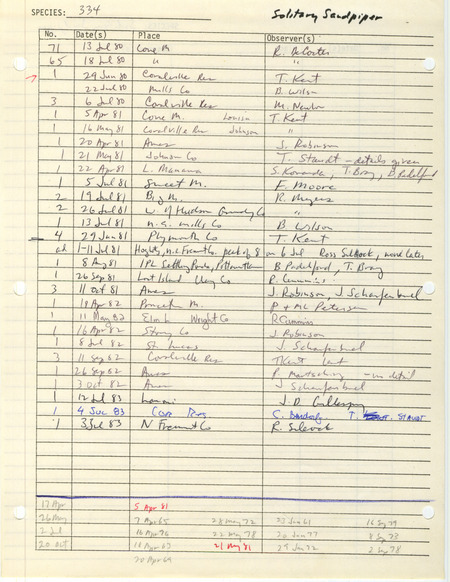 SPECIES: 334 Solitary Sandpiper
No. Date(s) Place Observer(s)
71 13 Jul 80 Cone M. R. DeCoster
65 18 Jul 80 " "
1 29 Jun 80 Coralville Res T. Kent
22 Jul 80 Mills Co B. Wilson
3 6 Jul 80 Coralville Res M. Newlon
1 5 Apr 81 Cone M. Louisa T. Kent
1 16 May 81 Coralville Res Johnson "
1 20 Apr 81 Ames J. Robinson
1 21 May 81 Johnson Co T. Staudt - details given
1 22 Apr 81 L. Manawa S. Kovanda, T. Bray, B Padelford
1 5 Jul 81 Sweet M. E. Moore
2 19 Jul 81 Big M. R. Myers
2 26 Jul 81 W. of Hudson Grundy Co "
1 13 Jul 81 Mills Co B Wilson
4 29 Jun 81 Plymouth Co T. Kent
1-11 Jul 81 peak of 8 on 6 Jul Ross Silcock
1 8 Aug 81 IPL Settling Ponds, Pottawattamie B Padelford, T. Bray
1 26 Sep 81 Lost Island Clay Co R. Cummins
3 11 Oct 81 Ames J. Robinson, J Scharfenbrul
1 19 Apr 82 Princeton M. P + MC Petersen
1 11 May 82 Elm L Wright Co R Cummins
1 16 Apr 82 Story Co J. Robinson
1 8 Jul 82 St. Lucas J. Scharfenbrul
3 11 Sep 82 Coralville Res T Kent
1 26 Sep 82 Ames - no detail
1 3 Oct 82 Ames J Scharfenbrul
1 12 Jul 83 Lamoni J.D. Gillespie
1 4 Jul 83 T. STAUDT
1 3 Jul 83 N Fremont Co R. Silcock
17 Apr 5 Apr 81
26 May 7 Apr 65 28 May 72 23 Jun 61 16 Sep 79
2 Jul 16 Apr 76 22 May 78 20 Jun 77 8 Sep 73
20 Oct 16 Apr 67 21 May 81 29 Jun 72 2 Sep 78
20 Apr 69